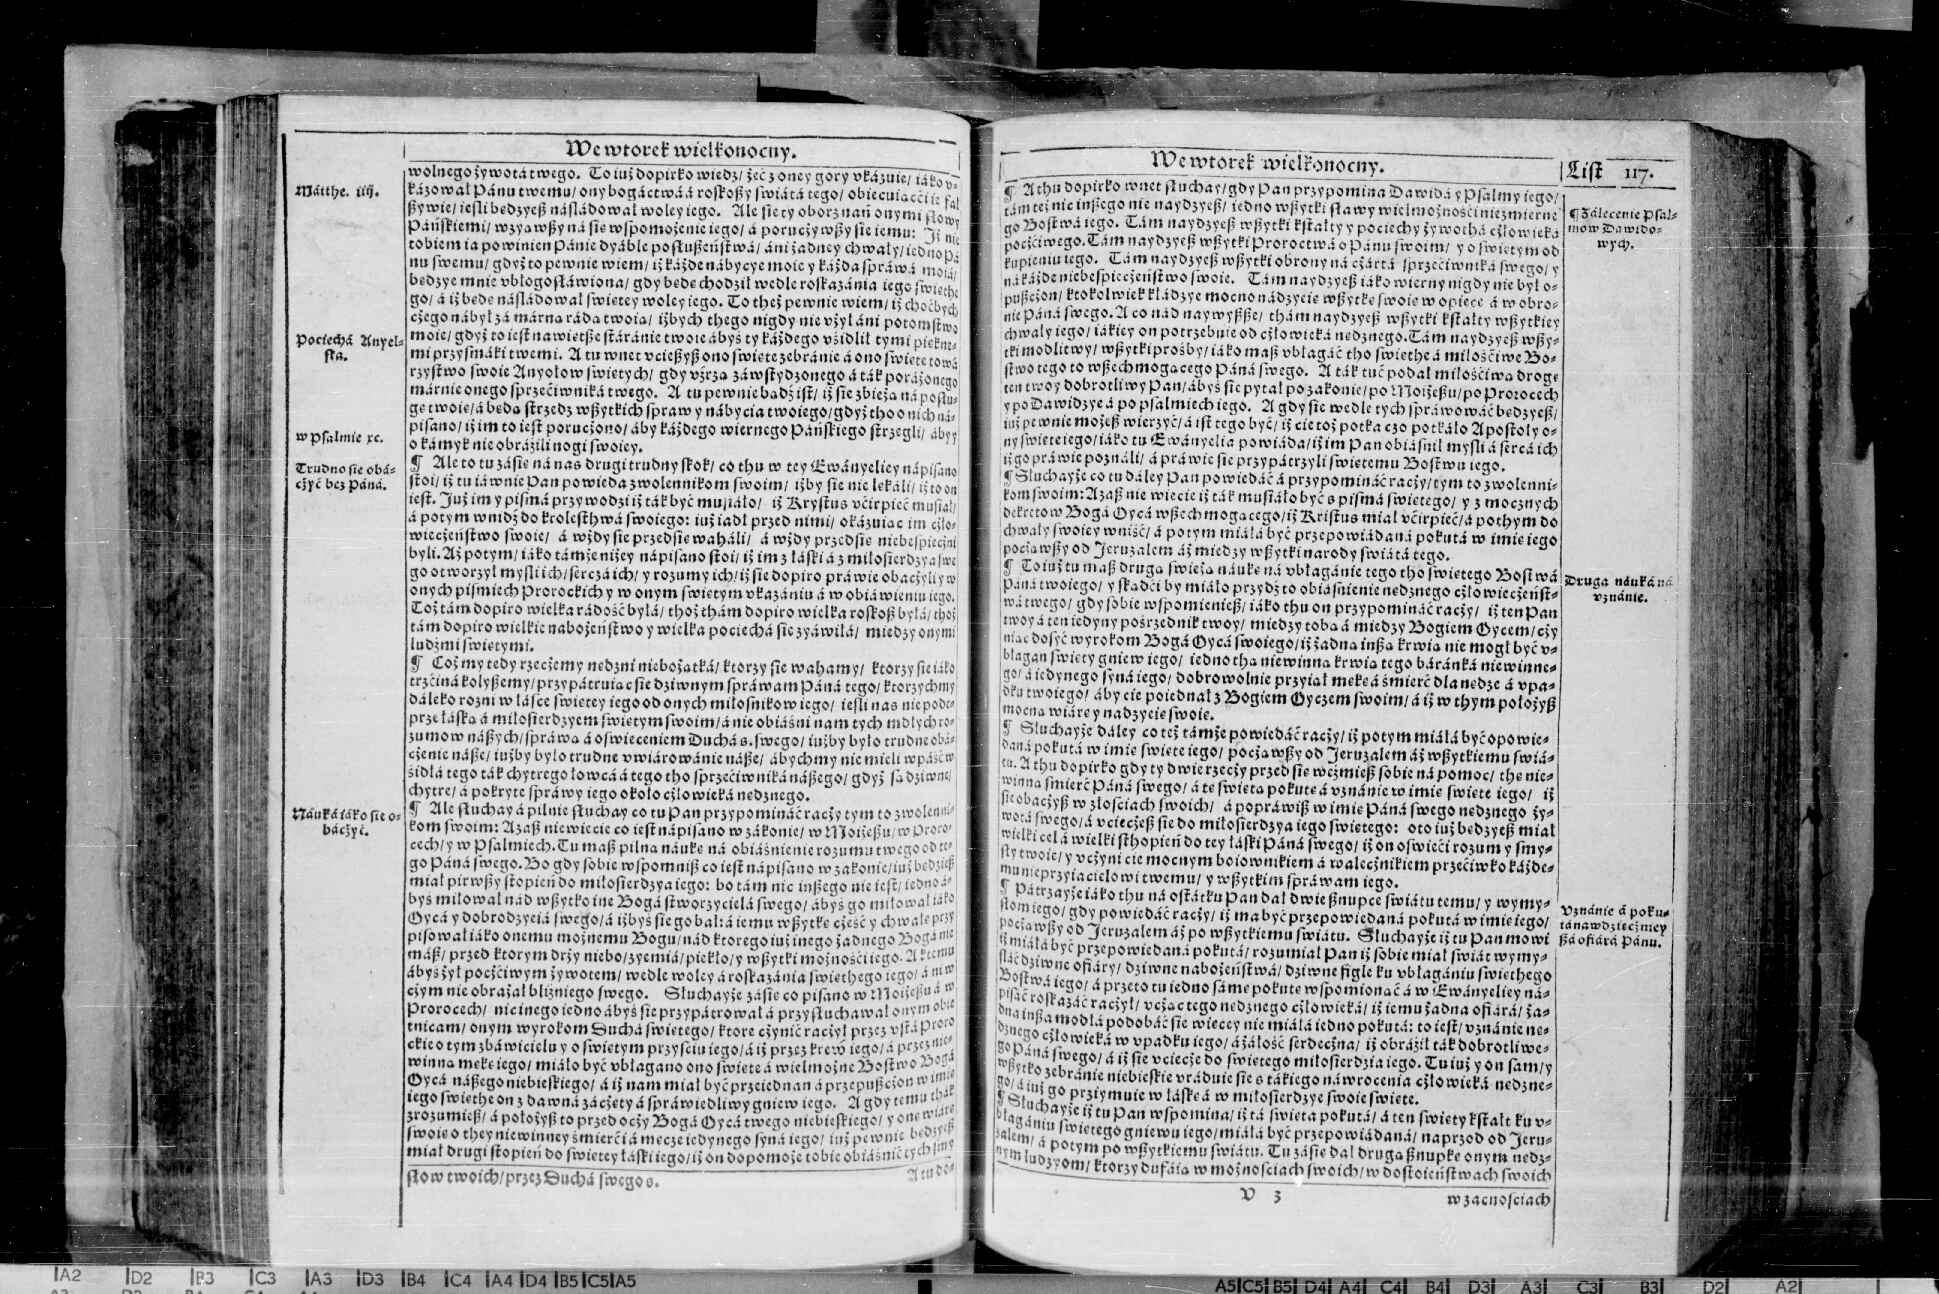 We wtorek wielkonocny.
wolnego żywotá twego. To iuż dopirko wiedz/ żeć z oney gory vkázuie/ iáko v-
kázował Pánu twemu/ ony bogáctwá á roskoßy świátá tego/ obiecuiąc ći ie fał
ßywie/ iesli będzyeß násládował woley iego. Ale się ty oborz nań onymi słowy
Páńskiemi/ wzyąwßy ná się wspomożenie iego/ á poruczywßy się iemu: Iż nie
tobiem ia powinien Pánie dyáble posłußeństwá/ áni żadney chwały/ iedno Pá
nu swemu/ gdyż to pewnie wiem/ iż káżde nábycye moie y káżda spráwá moiá/
będzye mnie vbłogosłáwiona/ gdy będę chodził wedle roskazánia iego święthe
go/ á iż będę násládował świętey woley iego. To theż pewnie wiem/ iż choćbych
czego nábył zá márną rádą twoią/ iżbych thego nigdy nie vżył áni potomstwo
moie/ gdyż to iest nawiętße stáránie twoie ábyś ty káżdego vśidlił tymi piękne-
mi przysmáki twemi. A tu wnet vcießyß ono święte zebránie á ono święte towá
rzystwo swoie Anyołow świętych/ gdy vźrzą záwstydzonego á ták poráżonego
márnie onego sprzećiwniká twego. A tu pewnie bądź ist/ iż się zbieżą ná posłu-
gę twoię/ á będą strzedz wßytkich spraw y nábycia twoiego/ gdyż tho o nich ná-
pisano/ iż im to iest poruczono/ áby káżdego wiernego Páńskiego strzegli/ áby y
o kámyk nie obráźili nogi swoiey.
¶ Ale to tu zásię ná nas drugi trudny skok/ co thu w tey Ewányeliey nápisano
stoi/ iż tu iáwnie Pan powieda zwolennikom swoim/ iżby się nie lękáli/ iż to on
iest. Już im y pismá przywodzi iż ták być muśiáło/ iż Krystus vćirpieć muśiał/
á potym wniść do krolesthwá swoiego: iuż iadł przed nimi/ okázuiąc im czło-
wieczeństwo swoie/ á wżdy się przedsię wáháli/ á wżdy przedsię niebespieczni
byli. Aż potym/ iáko támże niżey nápisano stoi/ iż im z łáski á z miłosierdzya swe
go otworzył myśli ich/ serczá ich/ y rozumy ich/ iż się dopiro práwie obaczyli y w
onych piśmiech Prorockich y w onym świętym vkazániu á w obiáwieniu iego.
Toż tám dopiro wielka rádość byłá/ thoż thám dopiro wielka roskoß byłá/ thoż
tám dopiro wielkie nabożeństwo y wielka pociechá się zyáwiłá/ miedzy onymi
ludźmi świętymi.
¶ Coż my tedy rzeczemy nędzni nieboźątká/ ktorzy się wáhamy/ ktorzy się iáko
trzćiná kolyßemy/ przypátruiąc się dziwnym spráwam Páná tego/ ktorzychmy
dáleko rozni w łásce świętey iego od onych miłosnikow iego/ iesli nas nie pode-
prze łáska á miłosierdzyem świętym swoim/ á nie obiáśni nam tych mdłych ro-
zumow náßych/ spráwą á oświeceniem Duchá s. swego/ iużby było trudne obá-
czenie náße/ iużby było trudne vwiárowánie náße/ ábychmy nie mieli wpáść w
śidłá tego ták chytrego łowcá á tego tho sprzećiwniká náßego/ gdyż są dziwne/
chytre/ á pokryte spráwy iego około człowieká nędznego.
¶ Ale słuchay á pilnie słuchay co tu Pan przypomináć raczy tym to zwolenni-
kom swoim: Azaß nie wiecie co iest nápisano w zakonie/ w Moiżeßu/ w Proro-
cech/ y w Psalmiech. Tu maß pilną náukę ná obiáśnienie rozumu twego od te-
go Páná swego. Bo gdy sobie wspomniß co iest nápisano w zakonie/ iuż będzieß
miał pirwßy stopień do miłosierdzya iego: bo tám nic inßego nie iest/ iedno á-
byś miłował nád wßytko ine Bogá stworzycielá swego/ ábyś go miłował iáko
Oycá y dobrodzyeiá swego/ á iżbyś się go bał: á iemu wßytkę cześć y chwałę przy
pisował iáko onemu możnemu Bogu/ nád ktorego iuż inego żadnego Bogá nie
máß/ przed ktorym drży niebo/ zyemiá/ piekło/ y wßytki możnośći iego. A k temu
ábyś żył poczćiwym żywotem/ wedle woley á roskazánia święthego iego/ á ni w
czym nie obrażał bliźniego swego. Słuchayże zásię co pisano w Moiżeßu á w
Prorocech/ nic inego iedno ábyś się przypátrował á przysłuchawał onym obie
tnicam/ onym wyrokom Duchá świętego/ ktore czynić raczył przez vstá Proro
ckie o tym zbáwicielu y o świętym przyśćiu iego/ á iż przez krew iego/ á przez nie-
winną mękę iego/ miáło być vbłagano ono święte á wielmożne Bostwo Bogá
Oycá náßego niebieskiego/ á iż nam miał być przeiednan á przepußczon w imię
iego święthe on z dawná záczęty á spráwiedliwy gniew iego. A gdy temu thák
zrozumieß/ á położyß to przed oczy Bogá Oycá twego niebieskiego/ y onę wiárę
swoię o they niewinney śmierći á męcze iedynego syná iego/ iuż pewnie będzyeß
miał drugi stopień do świętey łáski iego/ iż on dopomoże tobie obiáśnić tych smy
słow twoich/ przez Duchá swego s.
A tu do-
Mátthe. iiij.
Pociechá Anyel-
ska.
w Psalmie xc.
Trudno się obá-
czyć bez Páná.
Náuká iáko się o-
báczyć.
We wtorek wielkonocny.
List 117.
¶ A thu dopirko wnet słuchay/ gdy Pan przypomina Dawidá y Psalmy iego/
tám też nic inßego nie naydzyeß/ iedno wßytki sławy wielmożnośći niezmierne
go Bostwá iego. Tám naydzyeß wßytki kstałty y pociechy żywothá człowieká
poczćiwego. Tám naydzyeß wßytki Proroctwá o Pánu swoim/ y o świętym od
kupieniu iego. Tám naydzyeß wßytki obrony ná czártá sprzećiwniká swego/ y
ná káżde niebespieczeństwo swoie. Tám naydzyeß iáko wierny nigdy nie był o-
pußczon/ ktokolwiek kłádzye mocno nádzyeię wßytkę swoię w opiece á w obro-
nie Páná swego. A co nád naywyßße/ thám naydzyeß wßytki kstałty wßytkiey
chwały iego/ iákiey on potrzebuie od człowieká nędznego. Tám naydzyeß wßy-
tki modlitwy/ wßytki prośby/ iáko maß vbłagáć tho święthe á miłośćiwe Bo-
stwo tego to wßechmogącego Páná swego. A ták tuć podał miłośćiwą drogę
ten twoy dobrotliwy Pan/ ábyś się pytał po zakonie/ po Moiżeßu/ po Prorocech
y po Dawidzye á po psalmiech iego. A gdy się wedle tych spráwowáć będzyeß/
iuż pewnie możeß wierzyć/ á ist tego być/ iż cię toż potka czo potkáło Apostoły o-
ny święte iego/ iáko tu Ewányelia powiáda/ iż im Pan obiáśnił myśli á sercá ich
iż go práwie poználi/ á práwie się przypátrzyli świętemu Bostwu iego.
¶ Słuchayże co tu dáley Pan powiedáć á przypomináć raczy/ tym to zwolenni-
kom swoim: Azaß nie wiecie iż ták muśiáło być s pismá świętego/ y z mocnych
dekretow Bogá Oycá wßechmogącego/ iż Kristus miał vćirpieć/ á pothym do
chwały swoiey wniść/ á potym miáłá być przepowiádaná pokutá w imię iego
począwßy od Jeruzalem áż miedzy wßytki narody świátá tego.
¶ To iuż tu maß drugą świeżą náukę ná vbłagánie tego tho świętego Bostwá
Páná twoiego/ y skądći by miáło przydź to obiáśnienie nędznego człowieczeńst-
wá twego/ gdy sobie wspomienieß/ iáko thu on przypomináć raczy/ iż ten Pan
twoy á ten iedyny pośrzednik twoy/ miedzy tobą á miedzy Bogiem Oycem/ czy
niąc dosyć wyrokom Bogá Oycá swoiego/ iż żadną inßą krwią nie mogł być v-
błagan święty gniew iego/ iedno thą niewinną krwią tego báránká niewinne-
go/ á iedynego syná iego/ dobrowolnie przyiął mękę á śmierć dla nędze á vpa-
dku twoiego/ áby cię poiednał z Bogiem Oyczem swoim/ á iż w thym położyß
mocną wiárę y nádzyeię swoię.
¶ Słuchayże dáley co też támże powiedáć raczy/ iż potym miáłá być opowie-
dána pokutá w imię święte iego/ począwßy od Jeruzalem áż wßytkiemu świá-
tu. A thu dopirko gdy ty dwie rzeczy przed się weźmieß sobie ná pomoc/ thę nie-
winną śmierć Páná swego/ á tę świętą pokutę á vznánie w imię święte iego/ iż
się obaczyß w złośćiach swoich/ á popráwiß w imię Páná swego nędznego ży-
wotá swego/ á vcieczeß się do miłosierdzya iego świętego: oto iuż będzyeß miał
wielki cel á wielki sthopień do tey łáski Páná swego/ iż on oświeći rozum y smy-
sły twoie/ y vczyni cię mocnym boiownikiem á walecznikiem przećiwko káżde-
mu nieprzyiacielowi twemu/ y wßytkim spráwam iego.
¶ Pátrzayże iáko thu ná ostátku Pan dał dwie ßnupce świátu temu/ y wymy-
słom iego/ gdy powiedáć raczy/ iż ma być przepowiedaná pokutá w imię iego/
począwßy od Jeruzalem áż po wßytkiemu świátu. Słuchayże iż tu Pan mowi
iż miáłá być przepowiedaná pokutá/ rozumiał Pan iż sobie miał świát wymy-
śláć dziwne ofiáry/ dziwne nabożeństwá/ dziwne figle ku vbłagániu święthego
Bostwá iego/ á przeto tu iedno sámę pokutę wspomionąć á w Ewányeliey ná-
pisáć roskazáć raczył/ vcząc tego nędznego człowieká/ iż iemu żadna ofiárá/ ża-
dna inßa modłá podobáć się więcey nie miáłá iedno pokutá: to iest/ vznánie nę-
dznego człowieká w vpadku iego/ á żáłość serdeczna/ iż obráźił ták dobrotliwe-
go Páná swego/ á iż się vciecze do świętego miłosierdzia iego. Tu iuż y on sam/ y
wßytko zebránie niebieskie vráduie się s tákiego náwrocenia człowieká nędzne-
go/ á iuż go przyimuie w łáskę á w miłosierdzye swoie święte.
¶ Słuchayże iż tu Pan wspomina/ iż tá święta pokutá/ á ten święty kstałt ku v-
błagániu świętego gniewu iego/ miáłá być przepowiádaná/ naprzod od Jeru-
zalem/ á potym po wßytkiemu świátu. Tu zásię dał drugą ßnupkę onym nędz-
nym ludzyom/ ktorzy dufáią w możnościach swoich/ w dostoieństwach swoich
V 3
w zacnosciach
¶ Zálecenie Psal-
mow Dawido-
wych.
Druga náuká ná
vznánie.
Vznánie á poku-
tá nawdzięczniey
ßa ofiárá Pánu.
A2 D2 B3 C3 A3 D3 B4 C4 A4 D4 B5 C5 A5
A5 C5 B5 D4 A4 C4 B4 D3 A3 C3 B3 D2 A2